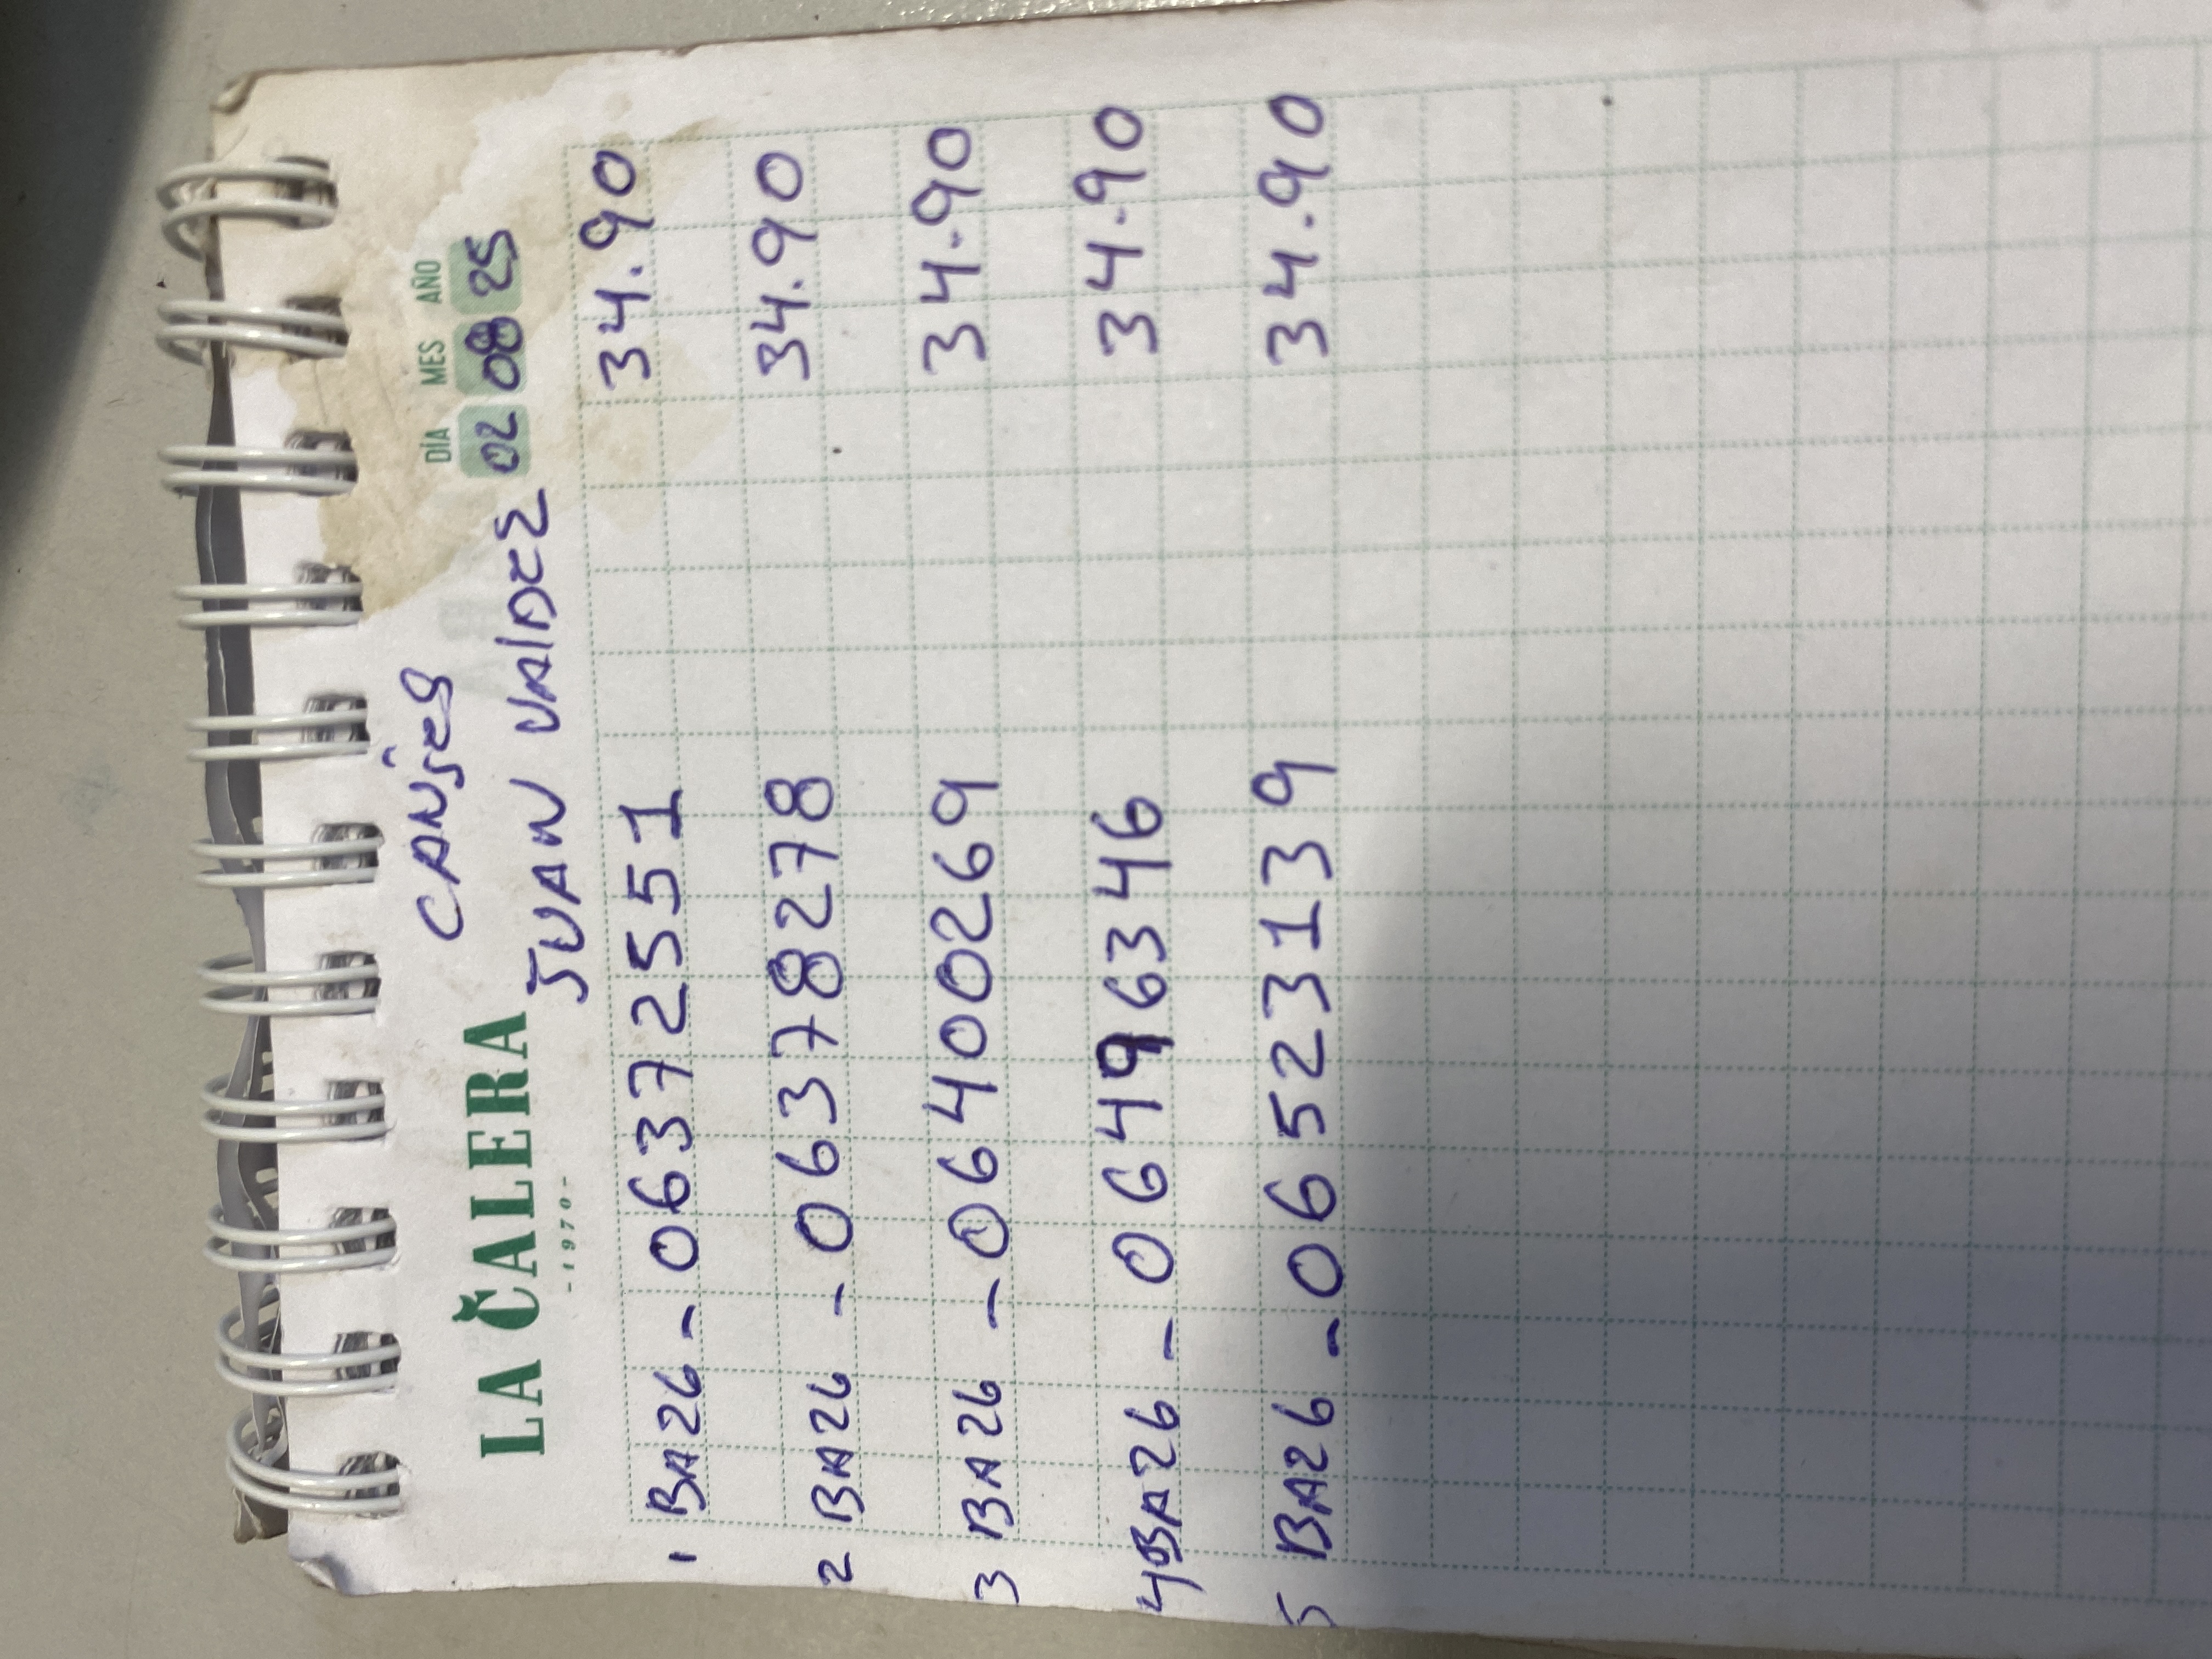 CANJES
LA CALERA
-1970-
JUAN VALDEZ
DÍA MES AÑO
02 08 25
1 BA26 - 06372551 34.90
2 BA26 - 06378278 34.90
3 BA26 - 06400269 34.90
4 BA26 - 06496346 34.90
5 BA26 - 06523139 34.90